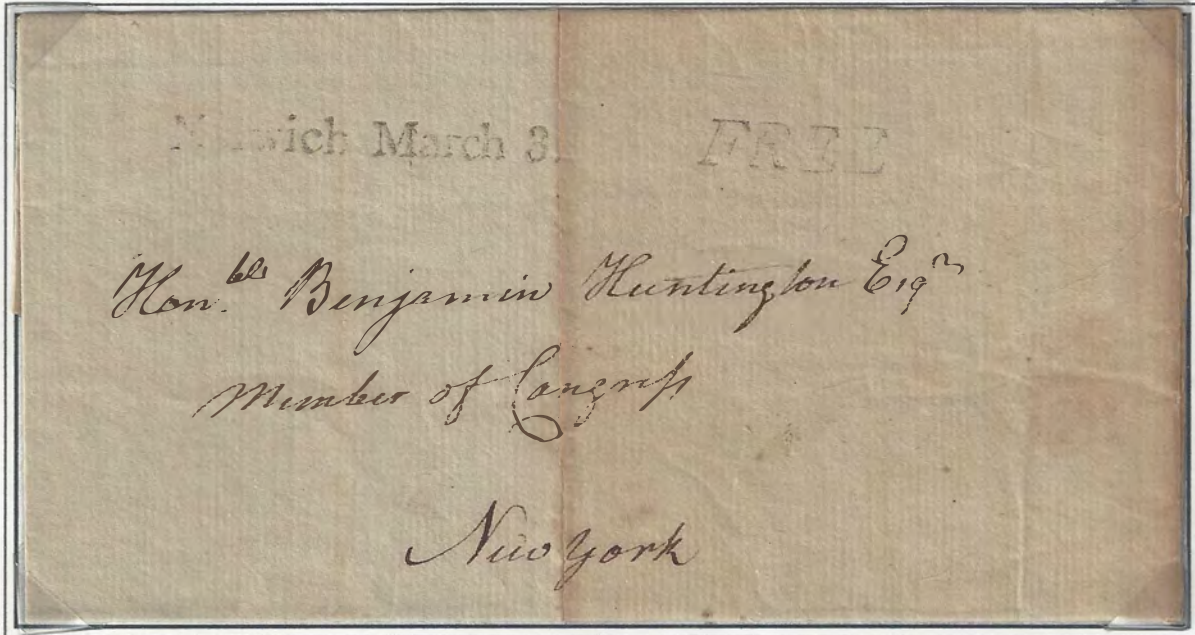 Norwich March 3. FREE
Hon.ble Benjamin Huntington Esqr
Member of Congress
New York